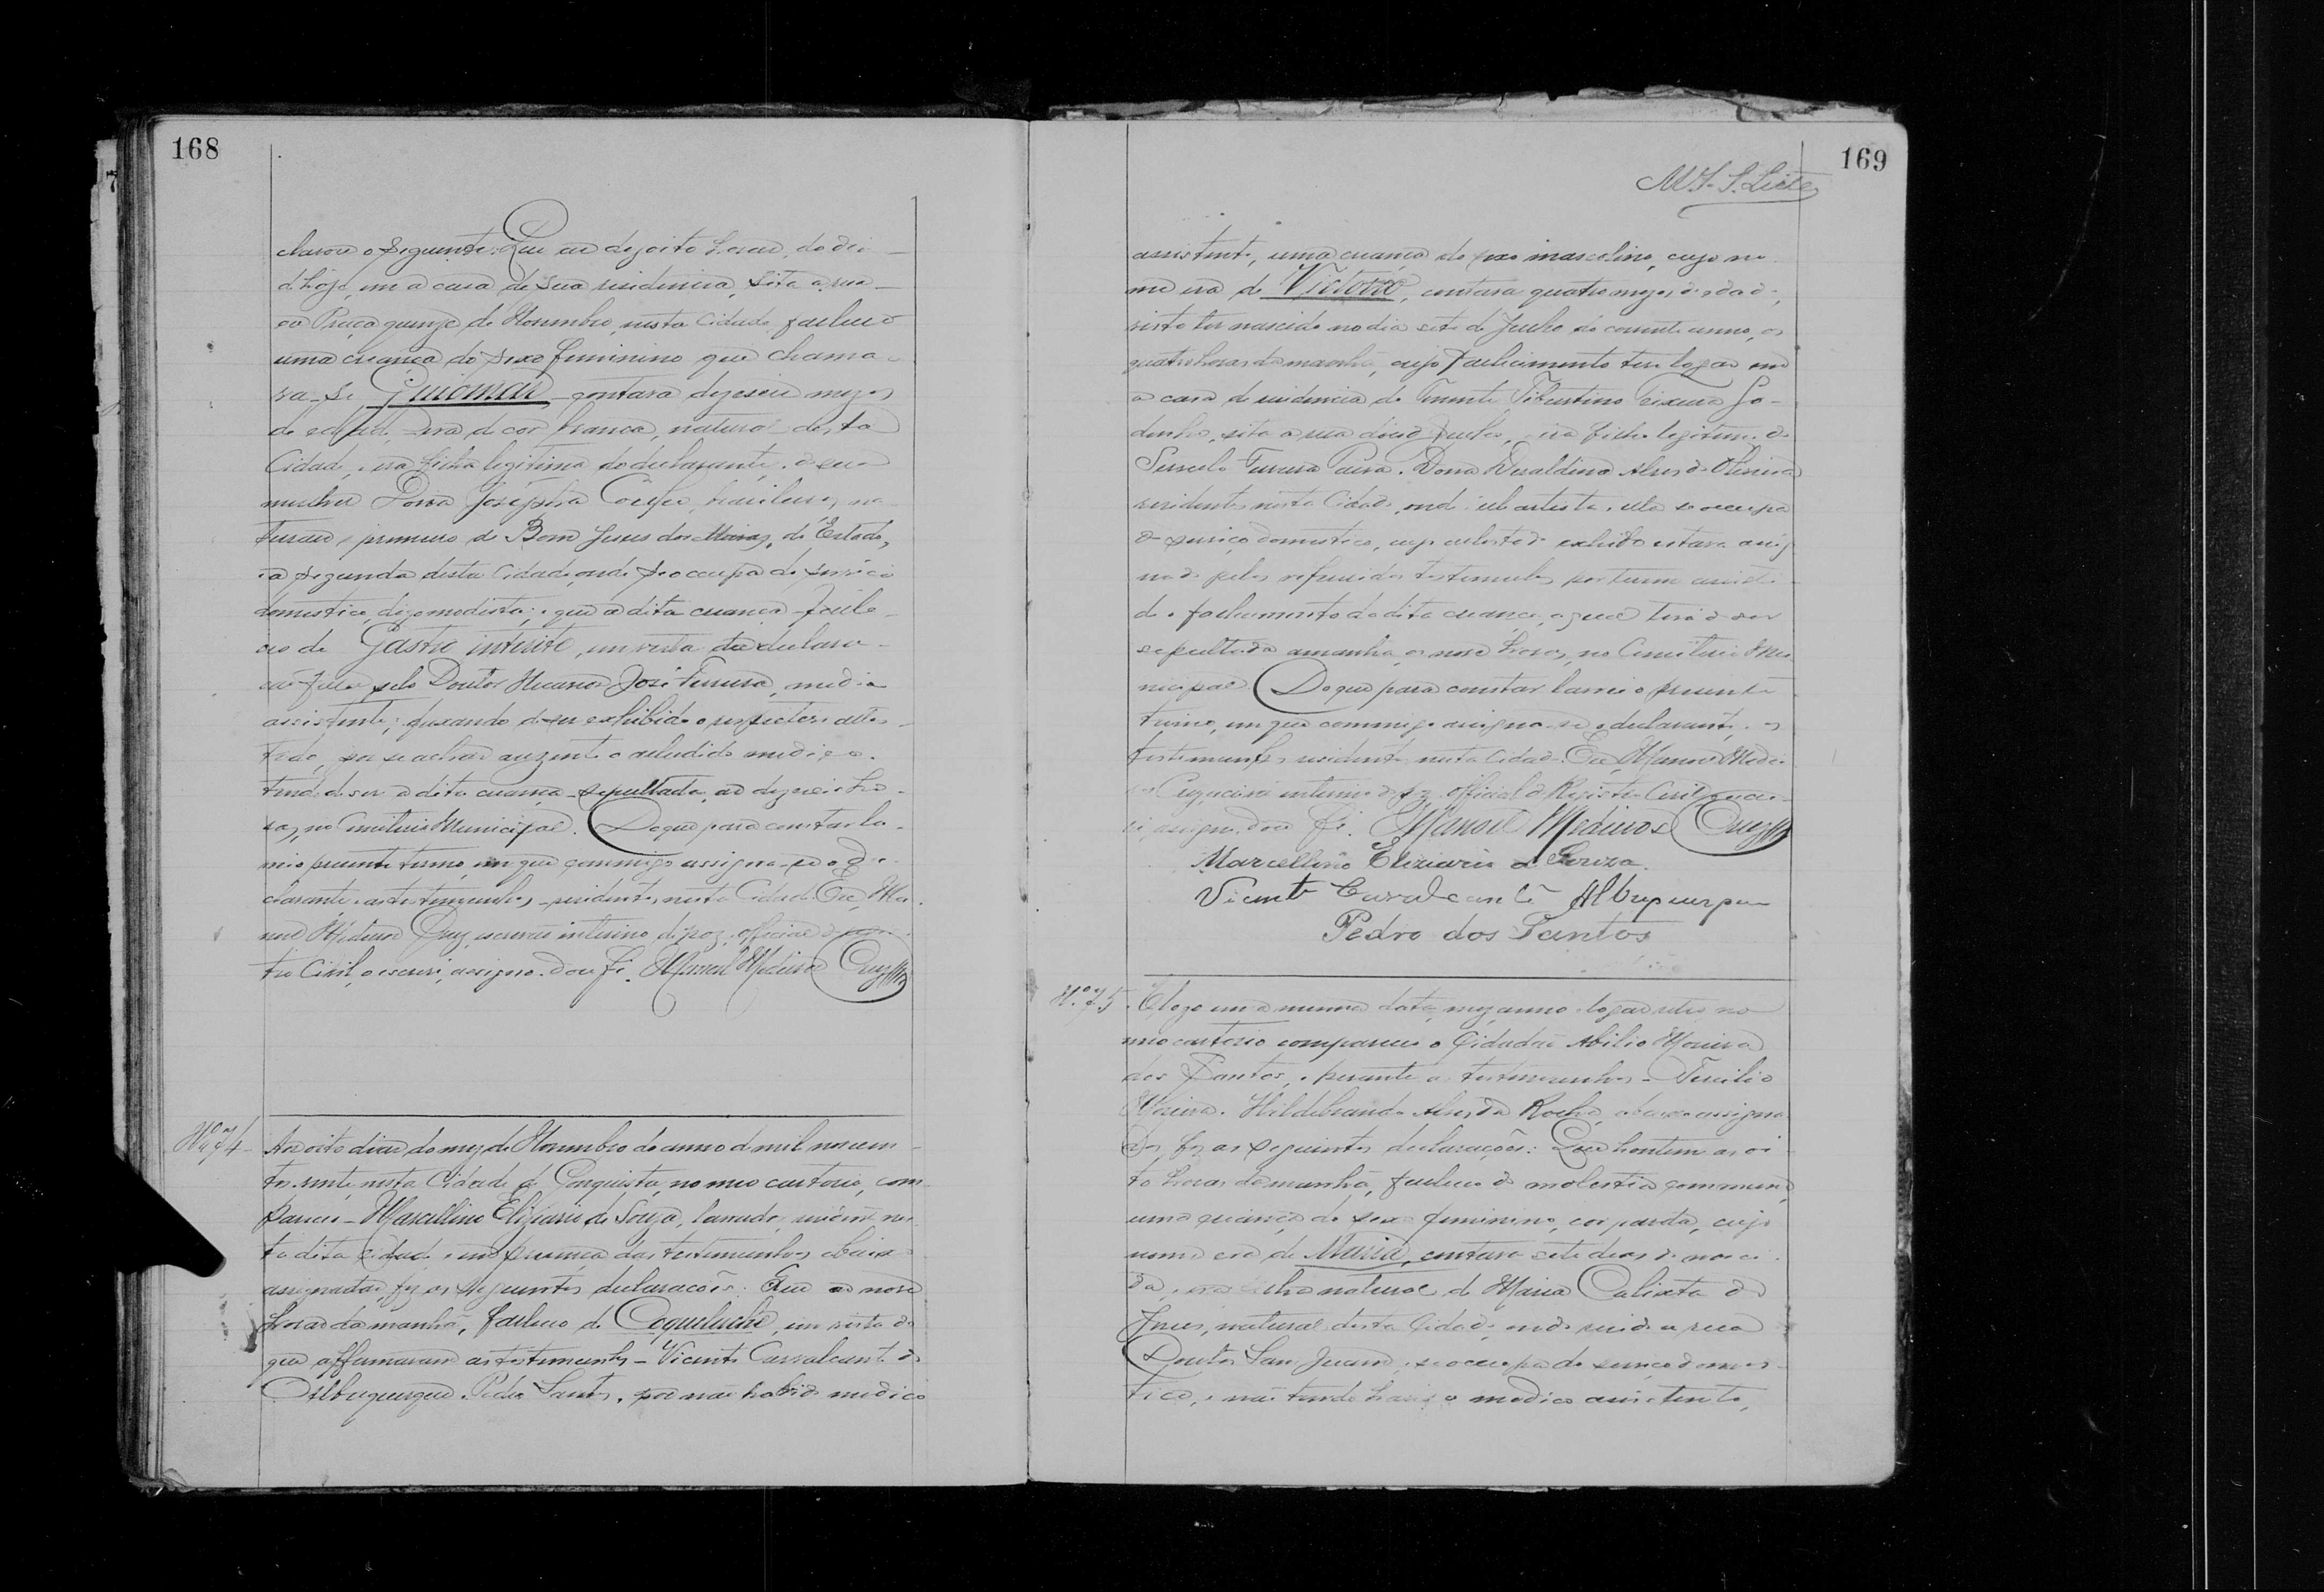 168
clarou o seguinte: Que as dezoito horas, do dia
d'hoje, em a casa de sua residencia, sita a rua
ou Praça quinze de Novembro, nesta Cidade, falleceu
uma creança do sexo feminino que chama-
va-se Guiomar, contava dezeseis mezes
de edade, era de cor branca, natural desta
Cidade, era filha legitima do declarante, e sua
mulher Dona Josépha Coêlho, brasileiros, na-
turaes, primeiro de Bom Jesus dos Meiras, do Estado,
e a segunda desta Cidade, onde se occupa de serviço
domestico, digo modista; e que a dita creança falle-
ceu de Gastro interite, em vista da declara-
ção feita pelo Doutor Nicanor José Ferreira, medico
assistente; deixando de ser exhibido o respectivo attes-
tado, por se achar auzente o alludido medico.
tendo de ser a dita creança sepultada, as dezeseis ho-
ras, no Cemiterio Municipal. Do que para constar la-
vrei o presente termo, em que commigo assigna-se o de-
clarante e as testemunhas, residentes nesta Cidade. Eu, Ma-
noel Medeiros Cruz, escrivão interino de paz, official do
tro Civil, o escrevi, assigno. Dou fé. Manoel Medeiros Cruz
Nº 74 - Aos oito dias do mez de Novembro do anno de mil novecen-
tos vinte, nesta Cidade de Conquista, no meu cartorio, com-
pareceu Marcellino Eliziario de Souza, residente nes-
ta dita Cidade e em presença das testemunhas abaixo
assignadas, fez as seguintes declarações: Que as nove
horas da manhã, falleceu de Coqueluche, em vista do
que affirmaram as testemunhas - Vicente Cavalcante de
Albuquerque e Pedro Santos, por não haver medico
169
assistente, uma creança do sexo masculino, cujo no-
me era de Victorio, contava quatro mezes de edade,
visto ter nascido no dia sete de Junho do corrente anno, as
quatro horas da manhã, cujo fallecimento teve logar em
a casa de residencia do Tenente Tiburtino
sita a rua era filho legitimo de
Ferreira Paiva e Dona Alves de Oliveira
residentes nesta Cidade, onde elle artista e ella se occupa
de serviço domestico, cujo attestado exhibido estava assig-
nado pelas referidas testemunhas por terem assisti-
do o fallecimento da dita creança, a qual terá de ser
sepultada amanhã as nove horas, no Cemiterio Mu-
nicipal. Do que para constar lavrei o presente
termo, em que commigo assigna-se o declarante, e as
testemunhas residentes nesta Cidade. Eu, Manoel Medei-
ros Cruz, escrivão interino de paz, official do Registro Civil
assigno. Dou fé. Manoel Medeiros Cruz
Marcellino Eliziario de Souza
Vicente Cavalcante Albuquerque
Pedro dos Santos
Nº 75 - E logo em a mesma data, mez, anno e logar retro no
meu cartorio compareceu o Cidadão Abilio Moreira
dos Santos, e perante as testemunhas -
e Hildebrando Alves da Rocha, abaixo assigna-
dos, fez as seguintes declarações: Que hontem as oi-
to horas da manhã, falleceu de molestia commum,
uma creança do sexo feminino, cor parda, cujo
nome era de Maria, contava sete dias de nasci-
da, era filha natural de Maria Calixta de
Jesus, natural desta Cidade, onde reside a rua
Doutor e se occupa de serviço domes-
tico, e não tendo havido medico assistente,